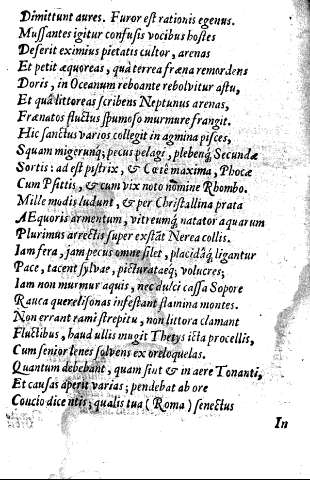 Dimittunt aures. Furor est rationis egenus.
Mussantes igitur confusis vocibus hostes
Deserit eximius pietatis cultor, arenas
Et petit æquoreas, quà terrea fræna remordens
Doris, in Oceanum reboante rebolvitur æstu,
Et quâ littoreas scribens Neptunus arenas,
Frænatos fluctus spumoso murmure frangit.
Hic sanctus varios collegit in agmina pisces,
Squamigerunq; pecus pelagi, plebenq; Secundæ
Sortis: ad est pistrix, & Cœtè maxima, Phocæ
Cum Psittis, & cum vix noto nomine Rhombo.
Mille modis ludunt, & per Christallina prata
AEquoris armentum, vitreumq; natator aquarum
Plurimus arrectis super exstāt Nerea collis.
Iam fera, jam pecus omne silet, placidâq; ligantur
Pace, tacent sylvæ, picturatæq; volucres;
Iam non murmur aquis, nec dulci cassa Sopore
Rauca querelisonas infestant flamina montes.
Non errant rami strepitu, non littora clamant
Fluctibus, haud ullis mugit Thetys icta procellis,
Cum senior lenes solvens ex ore loquelas.
Quantum debebant, quam sint & in aere Tonanti,
Et causas aperit varias; pendebat ab ore
Concio dicentis; qualis tua (Roma) senectus
In